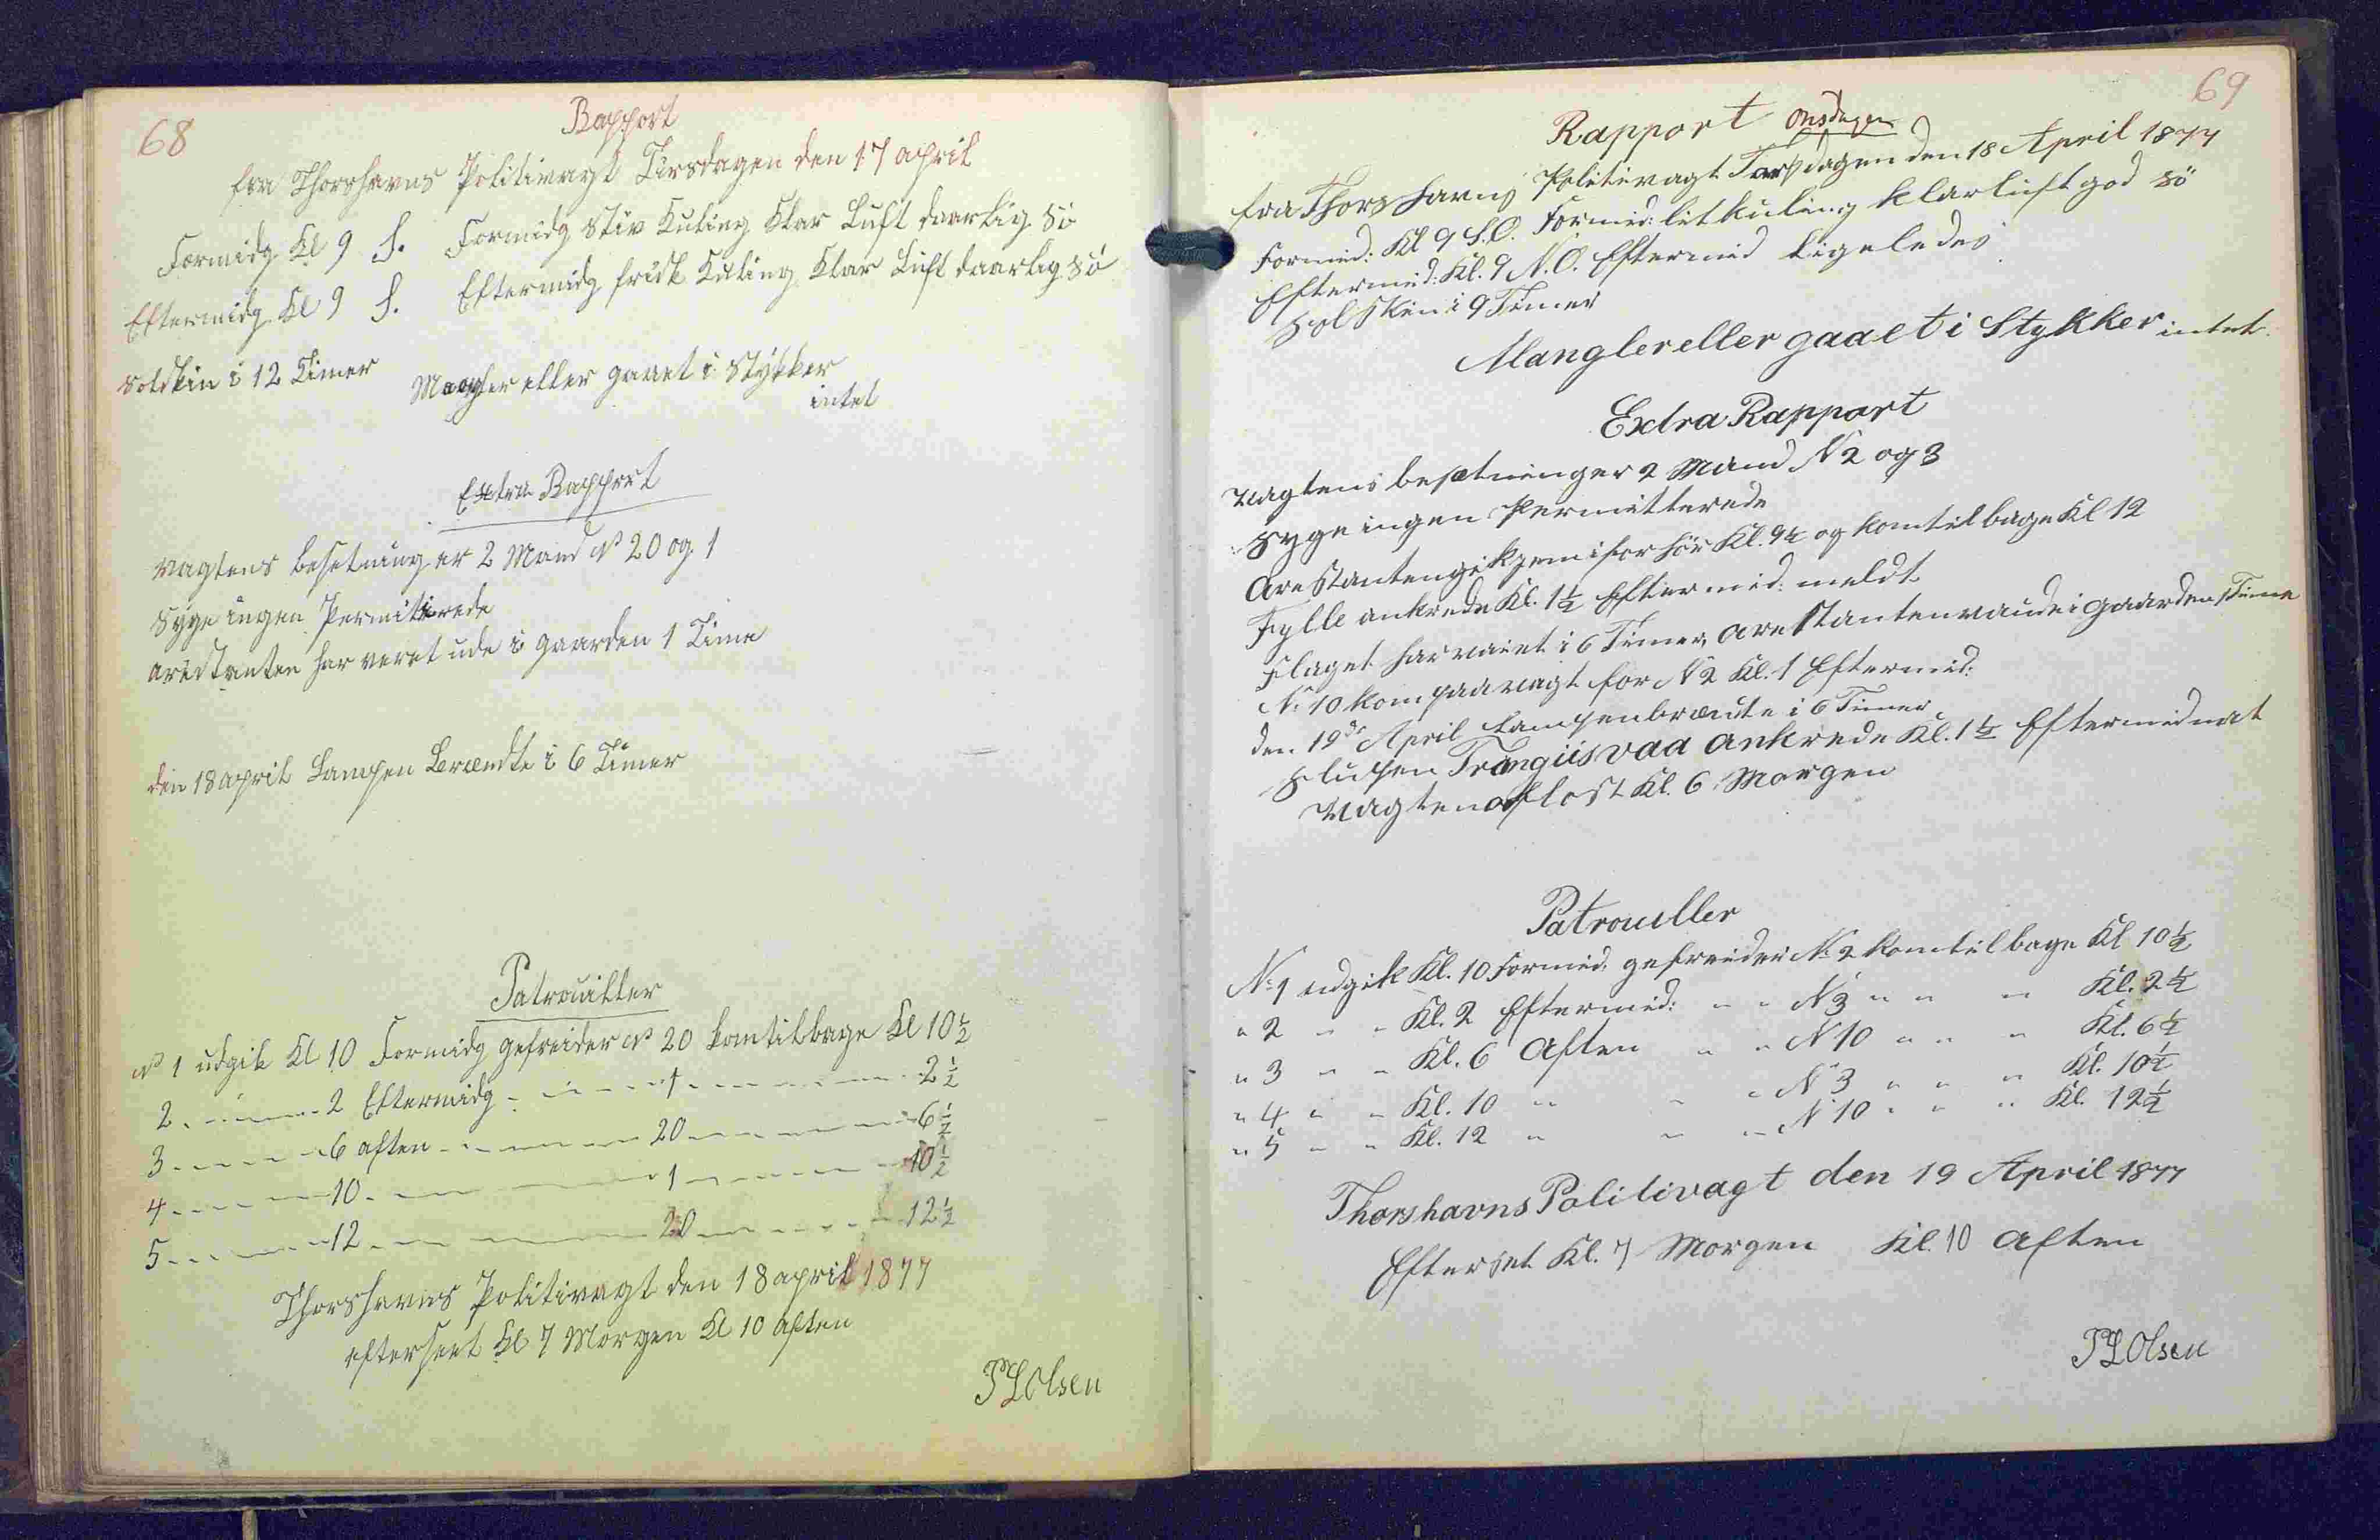 68
Rapport
fra Thorshavns Politivagt Tirsdagen den 17 april
Formidg Kl 9 S. Formidg Stiv Kuling Klar Luft daarlig Sö
Eftermidg Kl 9 S. Eftermidg frisk Kuling Klar Luft daarlig Sö
Solskin i 12 Timer
Mangler eller gaaet i Stykker
intet
Extra Rapport
Vagtens besetning er 2 Mand No 20 og 1
Syge ingen Permitirede
arestanten har veret ude i gaarden 1 Time
den 18 april Lampen Brændte i 6 Timer
Patrouiller
No 1 udgik Kl 10 Formidg gefreider No 20 komtilbage Kl 10½
2 - - - - 2 Eftermidg - - - - 1 - - - - 2½
3 - - - - 6 aften - - - - 20 - - - - 6½
4 - - - - 10 - - - - 1 - - - - 10½
5 - - - - 12 - - - - 20 - - - - 12½
Thorshavns Politivagt den 18 april 1877
efterseet Kl 7 Morgen Kl 10 aften
P L Olsen
69
Rapport Onsdagen
fra Thorshavns Politivagt Torsdagen den 18 April 1877
Formid: Kl 9 S.O. Formid: let kuling klar luft god Sö
Eftermid: Kl. 9 N.O. Eftermid ligeledes
Solskin i 9 Timer
Mangler eller gaaet i Stykker intet.
Extra Rapport
Vagtens besætning er 2 Mand No 2 og 3
Syge ingen Permitterede
Arestanten gik hjem i forhör Kl. 9½ og kom tilbage Kl 12
Fylle ankrede Kl. 1½ Eftermid: meldt
Flaget har vaiet i 6 Timer, Arestanten var ude i Gaarden 1 Time
No 10 kom paa vagt for No 2 Kl. 1 Eftermid:
den 19de April Lampen brændte i 6 Timer
Slupen Trangiisvaa Ankrede Kl. 1½ Eftermidnat
Vagten aflöst Kl. 6 Morgen
Patrouiller
No 1 udgik Kl. 10 Formid: gefreider No 2 kom tilbage Kl 10½
" 2 " " Kl. 2 Eftermid: " " No 3 " " " Kl. 2½
" 3 " " Kl. 6 Aften " " No 10 " " " Kl. 6½
" 4 " " Kl. 10 " " " No 3 " " " Kl. 10½
" 5 " " Kl. 12 " " " No 10 " " " Kl. 12½
Thorshavns Politivagt den 19 April 1877
Efterset Kl. 7 Morgen Kl. 10 Aften
P L Olsen